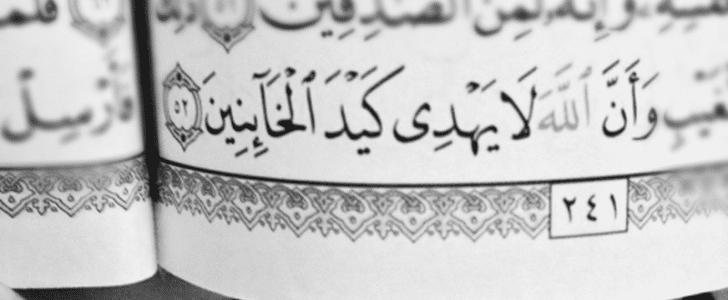 وَإِنَّهُۥ لَمِنَ ٱلصَّٰدِقِينَ ٥١
وَأَنَّ ٱللَّهَ لَا يَهْدِى كَيْدَ ٱلْخَآئِنِينَ ٥٢
٢٤١